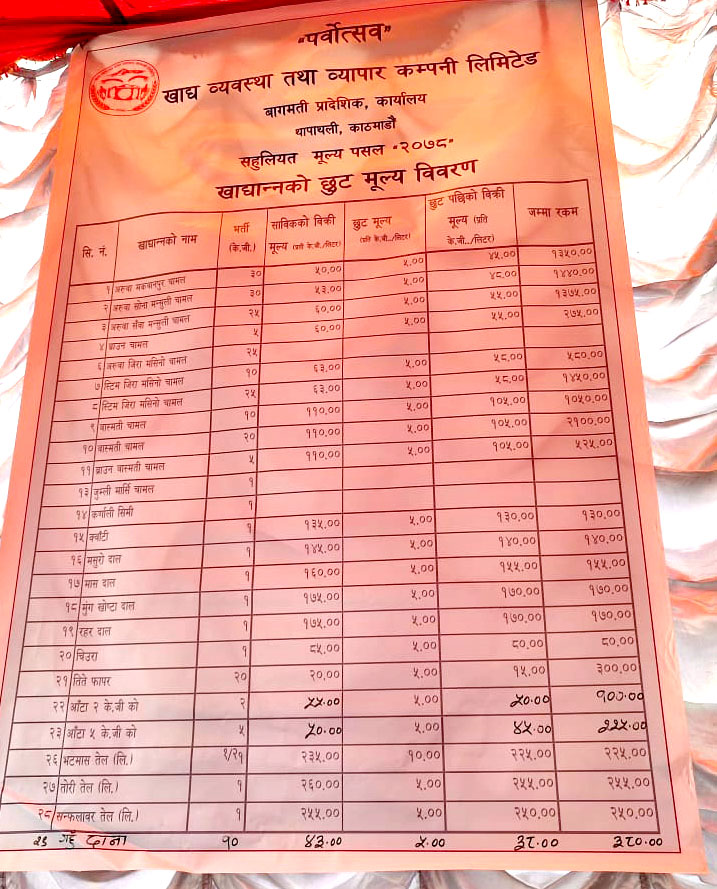 "पर्वोत्सव"
खाद्य व्यवस्था तथा व्यापार कम्पनी लिमिटेड
बागमती प्रादेशिक, कार्यालय
थापाथली, काठमाडौं
सहुलियत मूल्य पसल "२०७८"
खाद्यान्नको छुट मूल्य विवरण
सि. नं. खाद्यान्नको नाम भर्ती (के.जी.) साविकको बिक्री मूल्य (प्रति के.जी./लिटर) छुट मूल्य (प्रति के.जी./लिटर) छुट पछिको बिक्री मूल्य (प्रति के.जी../लिटर) जम्मा रकम
१ अरुवा मकवानपुर चामल ३० ५०.०० ५.०० ४५.०० १३५०.००
२ अरुवा सोना मन्सुली चामल ३० ५३.०० ५.०० ४८.०० १४४०.००
३ अरुवा सँवा मन्सुली चामल २५ ६०.०० ५.०० ५५.०० १३७५.००
४ ब्राउन चामल ५ ६०.०० ५.०० ५५.०० २७५.००
६ अरुवा जिरा मसिनो चामल २५
७ स्टिम जिरा मसिनो चामल १० ६३.०० ५.०० ५८.०० ५८०.००
८ स्टिम जिरा मसिनो चामल २५ ६३.०० ५.०० ५८.०० १४५०.००
९ बास्मती चामल १० ११०.०० ५.०० १०५.०० १०५०.००
१० बास्मती चामल २० ११०.०० ५.०० १०५.०० २१००.००
११ ब्राउन बास्मती चामल ५ ११०.०० ५.०० १०५.०० ५२५.००
१३ जुम्ली मार्सि चामल १
१४ कर्णाली सिमी १
१५ क्वाँटी १ १३५.०० ५.०० १३०.०० १३०.००
१६ मसुरो दाल १ १४५.०० ५.०० १४०.०० १४०.००
१७ मास दाल १ १६०.०० ५.०० १५५.०० १५५.००
१८ मुंग खोष्टा दाल १ १७५.०० ५.०० १७०.०० १७०.००
१९ रहर दाल १ १७५.०० ५.०० १७०.०० १७०.००
२० चिउरा १ ८५.०० ५.०० ८०.०० ८०.००
२१ तिते फापर २० २०.०० ५.०० १५.०० ३००.००
२२ आँटा २ के.जी को २ ५५.०० ५.०० ५०.०० १००.००
२३ आँटा ५ के.जी को ५ ५०.०० ५.०० ४५.०० २२५.००
२६ भटमास तेल (लि.) १/२१ २३५.०० १०.०० २२५.०० २२५.००
२७ तोरी तेल (लि.) १ २६०.०० ५.०० २५५.०० २५५.००
२८ सन्फलावर तेल (लि.) १ २५५.०० ५.०० २५०.०० २५०.००
२९ गहुँ दाना १० ४३.०० ५.०० ३८.०० ३८०.००